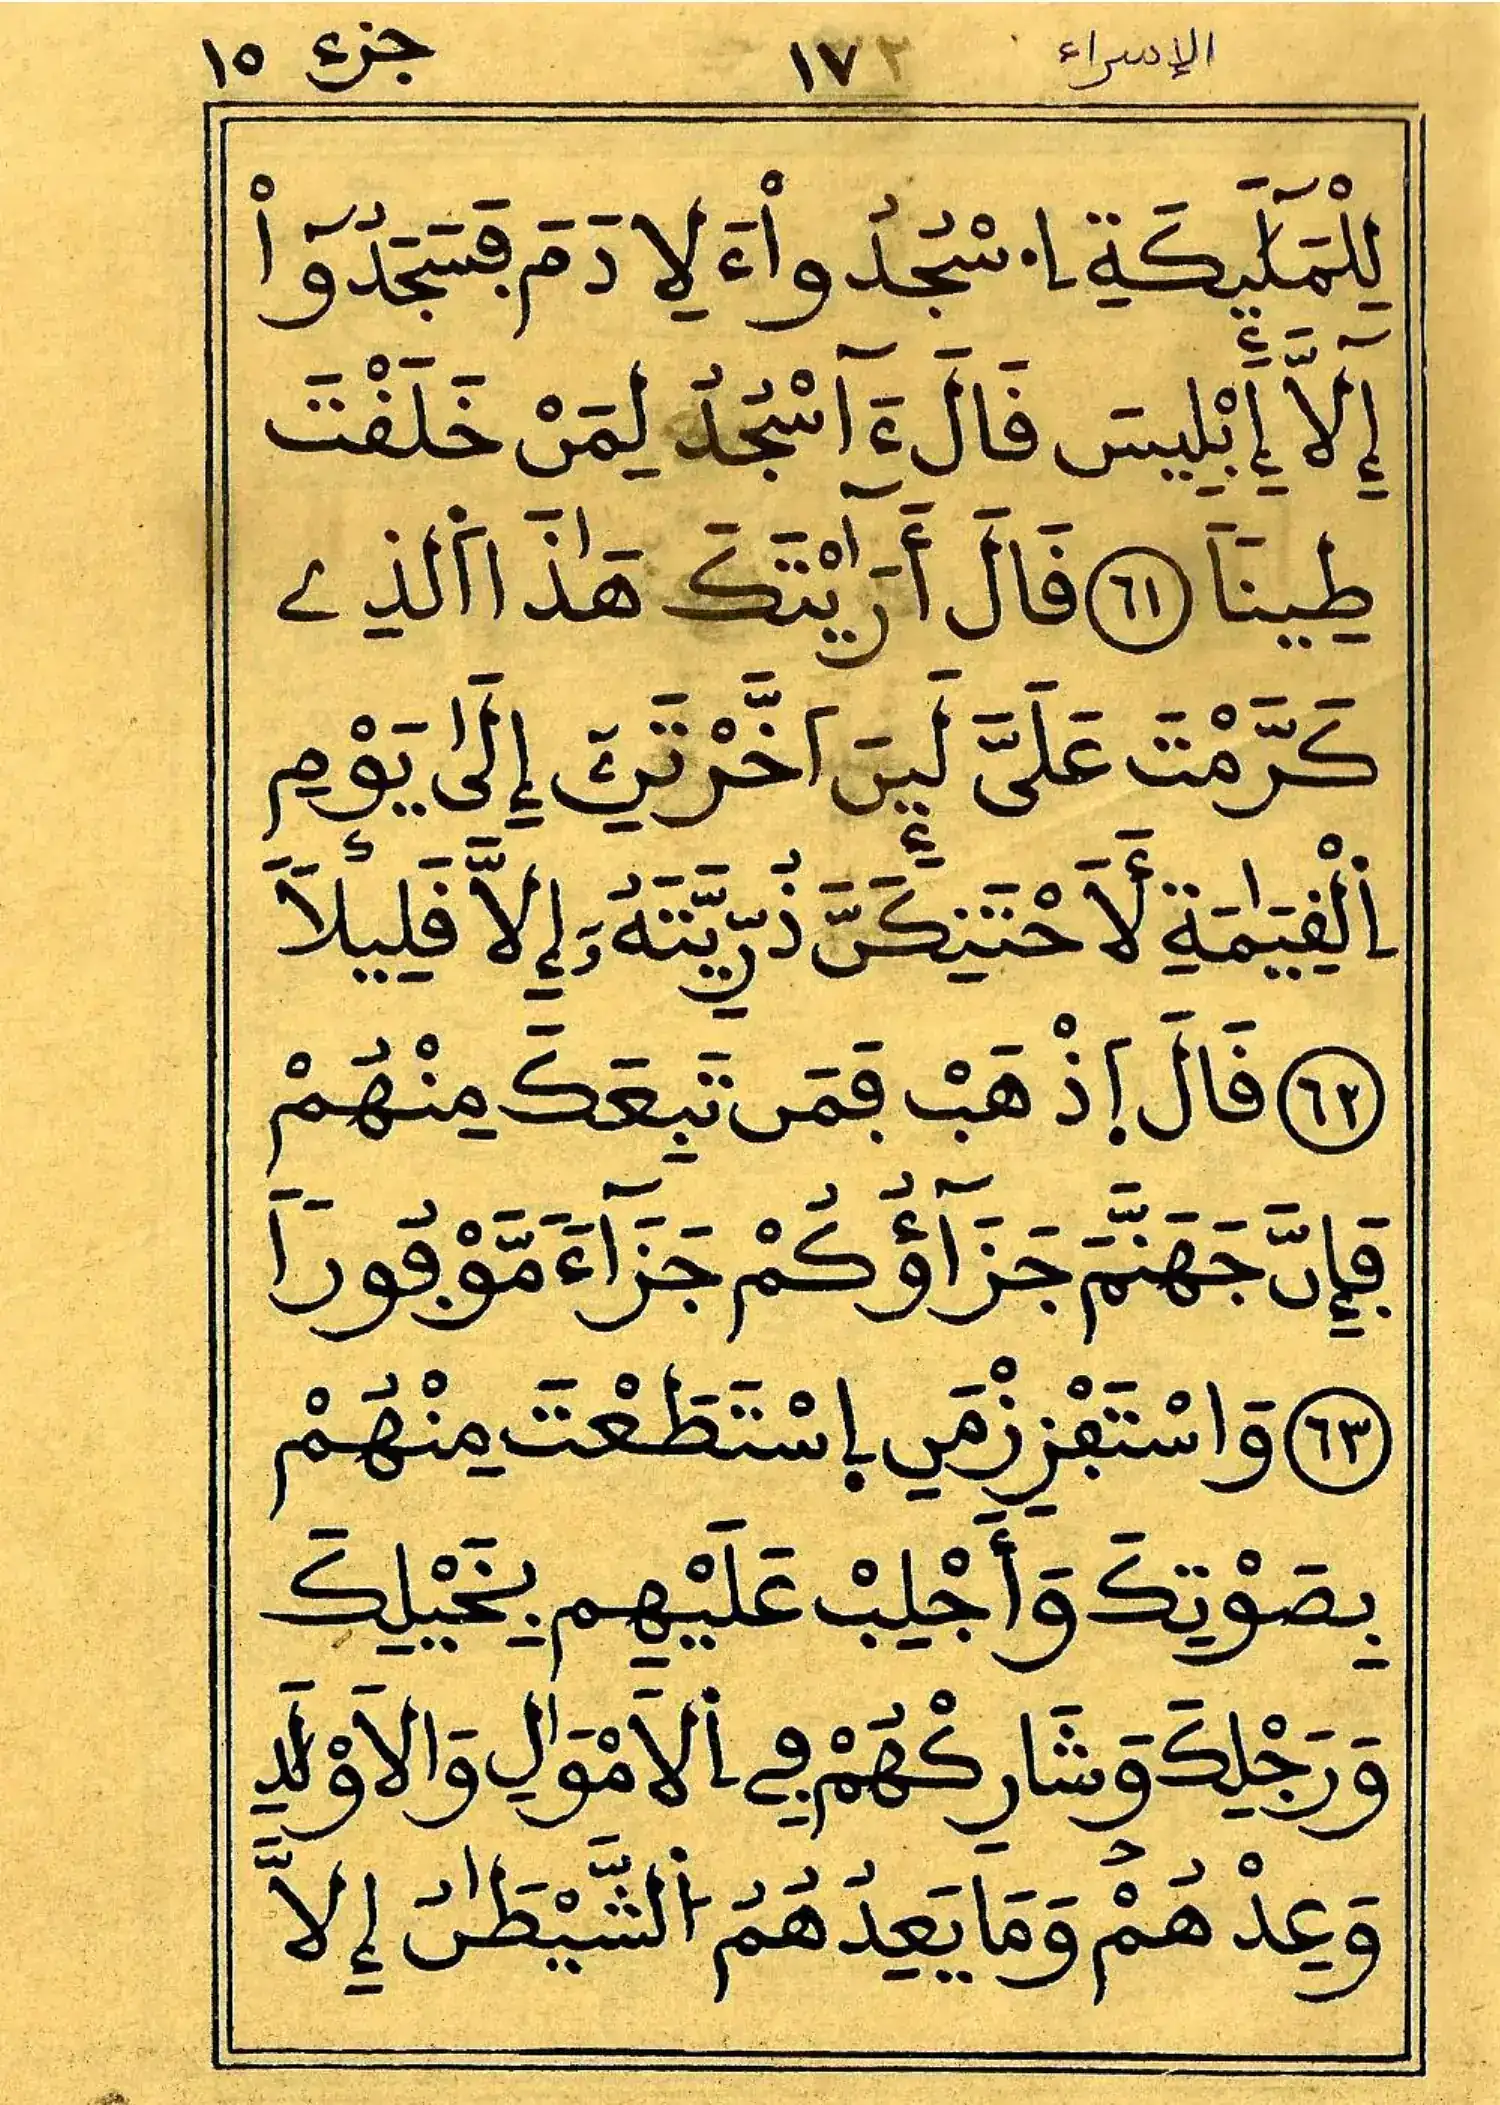 الإسراء ١٧ جزء ١٥
لِلْمَلَٰٓئِكَةِ اِ۟سْجُدُواْ ءَلِادَمَ ڢَسَجَدُوٓاْ
إِلَّآ إِبْلِيسَ فَالَ ءَآسْجُدُ لِمَنْ خَلَفْتَ
طِيناَ ٦١ فَالَ أَرَٰٓيْتَكَ هَٰذَا اَ۬لذِے
كَرَّمْتَ عَلَىَّ لَئِنَ اَخَّرْتَنِۦ إِلَىٰ يَوْمِ
اِ۬لْفِيَٰمَةِ لَأَحْتَنِكَنَّ ذُرِّيَّتَهُۥ إِلاَّ فَلِيلاَ
٦٢ فَالَ اِذْهَبْ ڢَمَن تَبِعَكَ مِنْهُمْ
ڢَإِنَّ جَهَنَّمَ جَزَآؤُكُمْ جَزَآءَ مَّوْڢُوراَ
٦٣ وَاسْتَڢْزِزْ مَنِ اِسْتَطَعْتَ مِنْهُمْ
بِصَوْتِكَ وَأَجْلِبْ عَلَيْهِم بِخَيْلِكَ
وَرَجْلِكَ وَشَارِكْهُمْ ڢِے اِ۬لاَمْوَٰلِ وَالاَوْلَٰدِ
وَعِدْهُمْ وَمَا يَعِدُهُمُ اُ۬لشَّيْطَٰنُ إِلاَّ